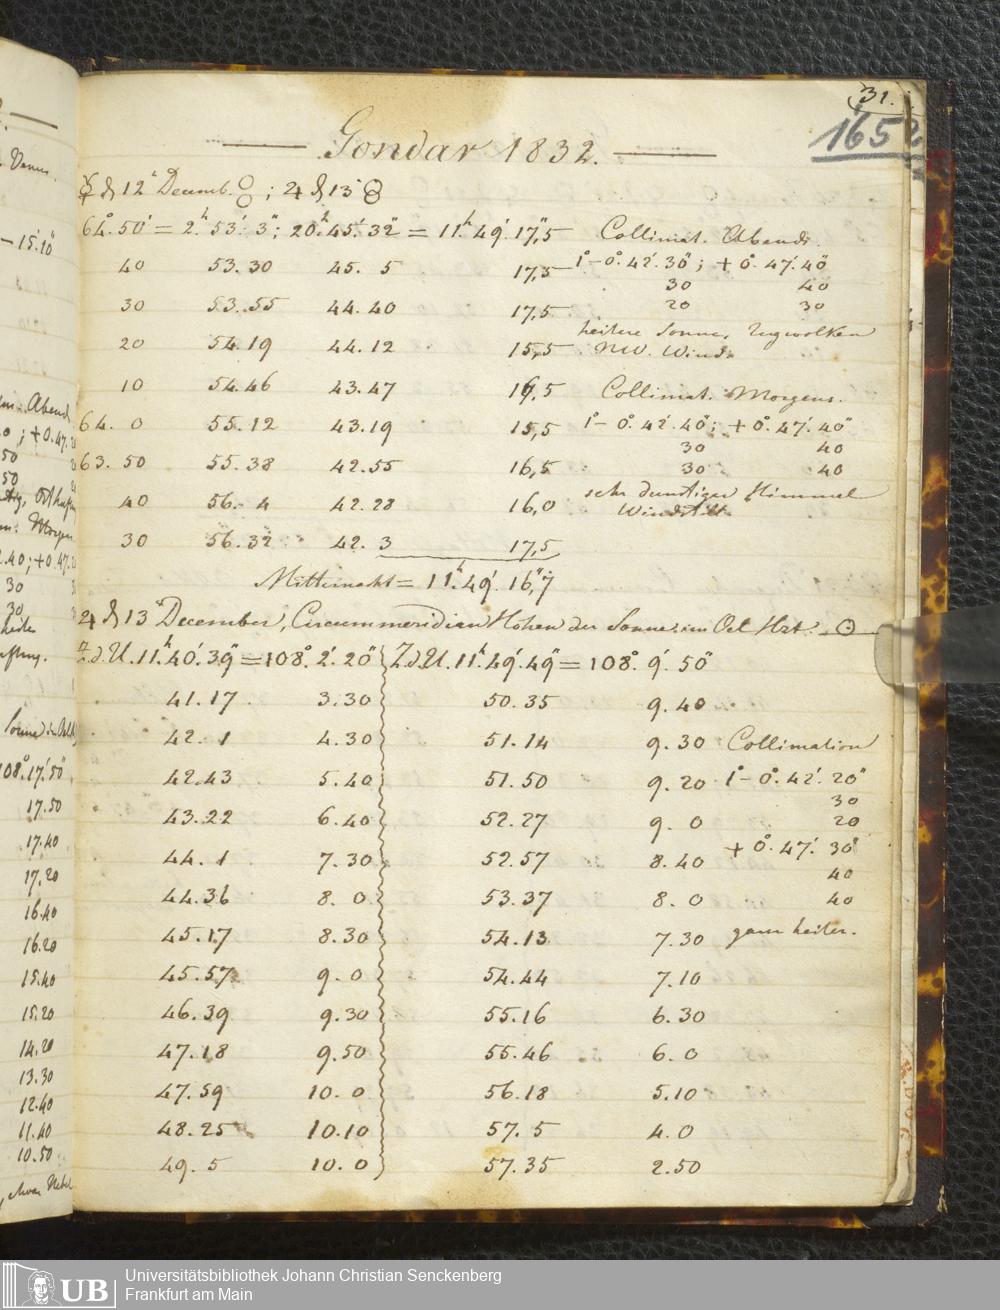 31.
1652
Gondar 1832.
☿ d 12t Decemb. ; ♃ d 13t
64°. 50' = 2h. 53'. 3"; 20h. 45'. 32" = 11h. 49'. 17",5 Collimat. Abends.
40 53. 30 45. 5 17,5 1° - 0°. 42'. 30"; + 0°. 47'. 40"
30 40
30 53. 55 44. 40 17,5 20 30
heitere Sonne, Zugwolken
20 54. 19 44. 12 15,5 NW. Wind.
10 54. 46 43. 47 16,5 Collimat. Morgens.
64. 0 55. 12 43. 19 15,5 1° - 0°. 42'. 40"; + 0°. 47'. 40"
30 40
63. 50 55. 38 42. 55 16,5 30 40
sehr dunstiger Himmel
40 56. 4 42. 28 16,0 Windstill
30 56. 32 42. 3 17,5
Mitternacht = 11h. 49'. 16",7
♃ d 13t December, Circummeridian Höhen der Sonne im Oel Hzt. ☉
Z.d.U. 11h. 40'. 39" = 108°. 2'. 20" Z.d.U. 11h. 49'. 49" = 108°. 9'. 50"
41. 17 3. 30 50. 35 9. 40
42. 1 4. 30 51. 14 9. 30 Collimation
42. 43 5. 40 51. 50 9. 20 1° - 0°. 42'. 20"
30
43. 22 6. 40 52. 27 9. 0 20
+ 0°. 47'. 30"
44. 1 7. 30 52. 57 8. 40
40
44. 36 8. 0 53. 37 8. 0 40
45. 17 8. 30 54. 13 7. 30 ganz heiter.
45. 57 9. 0 54. 44 7. 10
46. 39 9. 30 55. 16 6. 30
47. 18 9. 50 55. 46 6. 0
47. 59 10. 0 56. 18 5. 10
48. 25 10. 10 57. 5 4. 0
49. 5 10. 0 57. 35 2. 50
Venus.
- 15'. 20"
Abend
50
50
30
30
heiter
108°. 17'. 50"
17. 50
17. 40
17. 20
16. 40
16. 20
15. 40
15. 20
14. 20
13. 30
12. 40
11. 40
10. 50
etwas Nebel
UB
Universitätsbibliothek Johann Christian Senckenberg
Frankfurt am Main